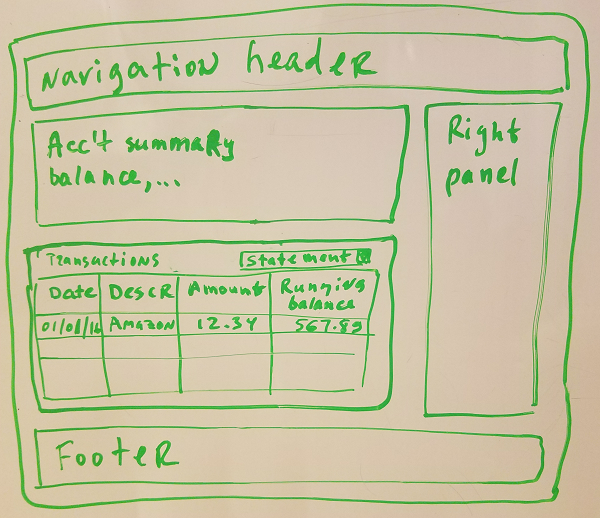 Navigation header
Acc't summary
balance,...
Right
panel
Transactions
Statement
Date Descr Amount Running
balance
01/01/16 Amazon 12.34 567.89
Footer